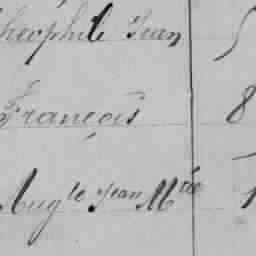 Théophile Jean 5
François 8
Aug.te Jean M.rie 1